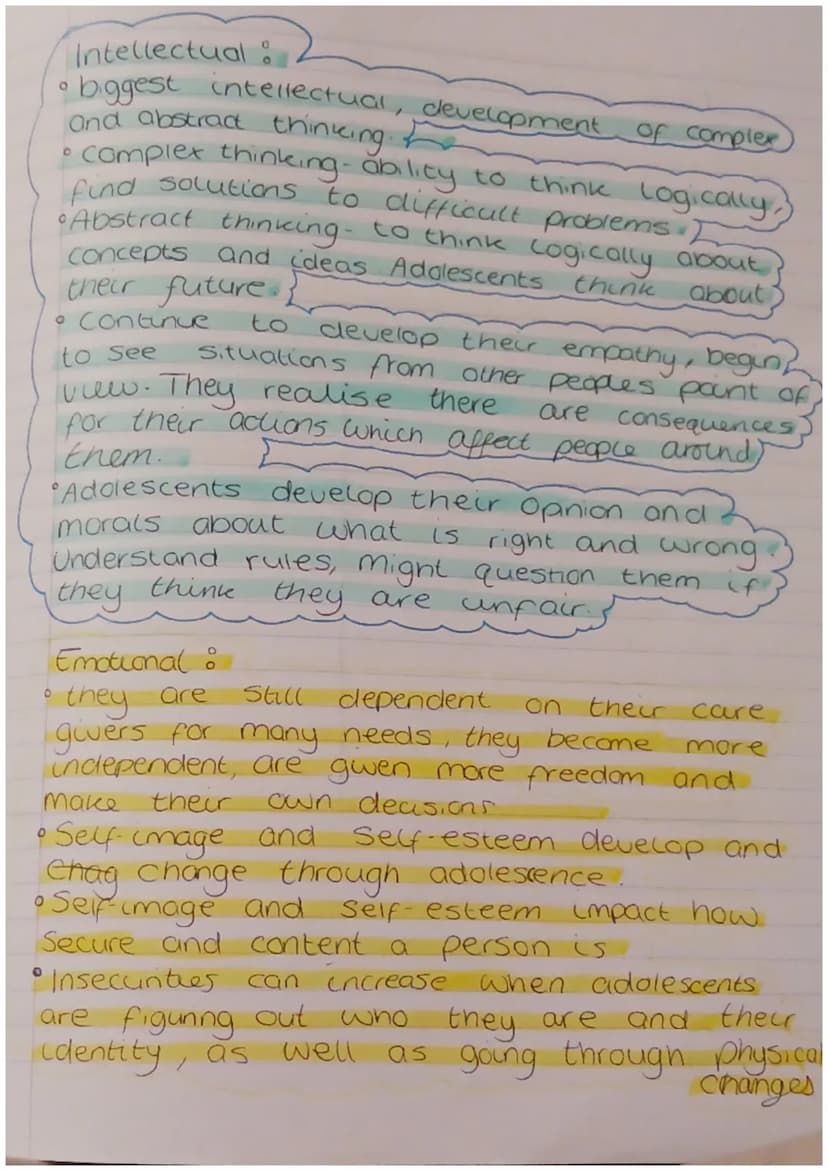 Intellectual :
• biggest intellectual, development of complex
and abstract thinking.
• complex thinking- ability to think logically,
find solutions to difficult problems.
• Abstract thinking- to think logically about
concepts and ideas Adolescents think about
their future.
• Continue to develop their empathy, begin
to see situations from other peoples point of
view. They realise there are consequences
for their actions which affect people around
them.
• Adolescents develop their opnion and
morals about what is right and wrong.
Understand rules, might question them if
they think they are unfair.
Emotional :
• they are still dependent on their care
givers for many needs, they become more
independent, are given more freedom and
make their own decisions
• Self-image and self-esteem develop and
Chag change through adolescence.
• Self-image and self-esteem impact how
secure and content a person is
• Insecurities can increase when adolescents
are figuring out who they are and their
identity, as well as going through physical
changes